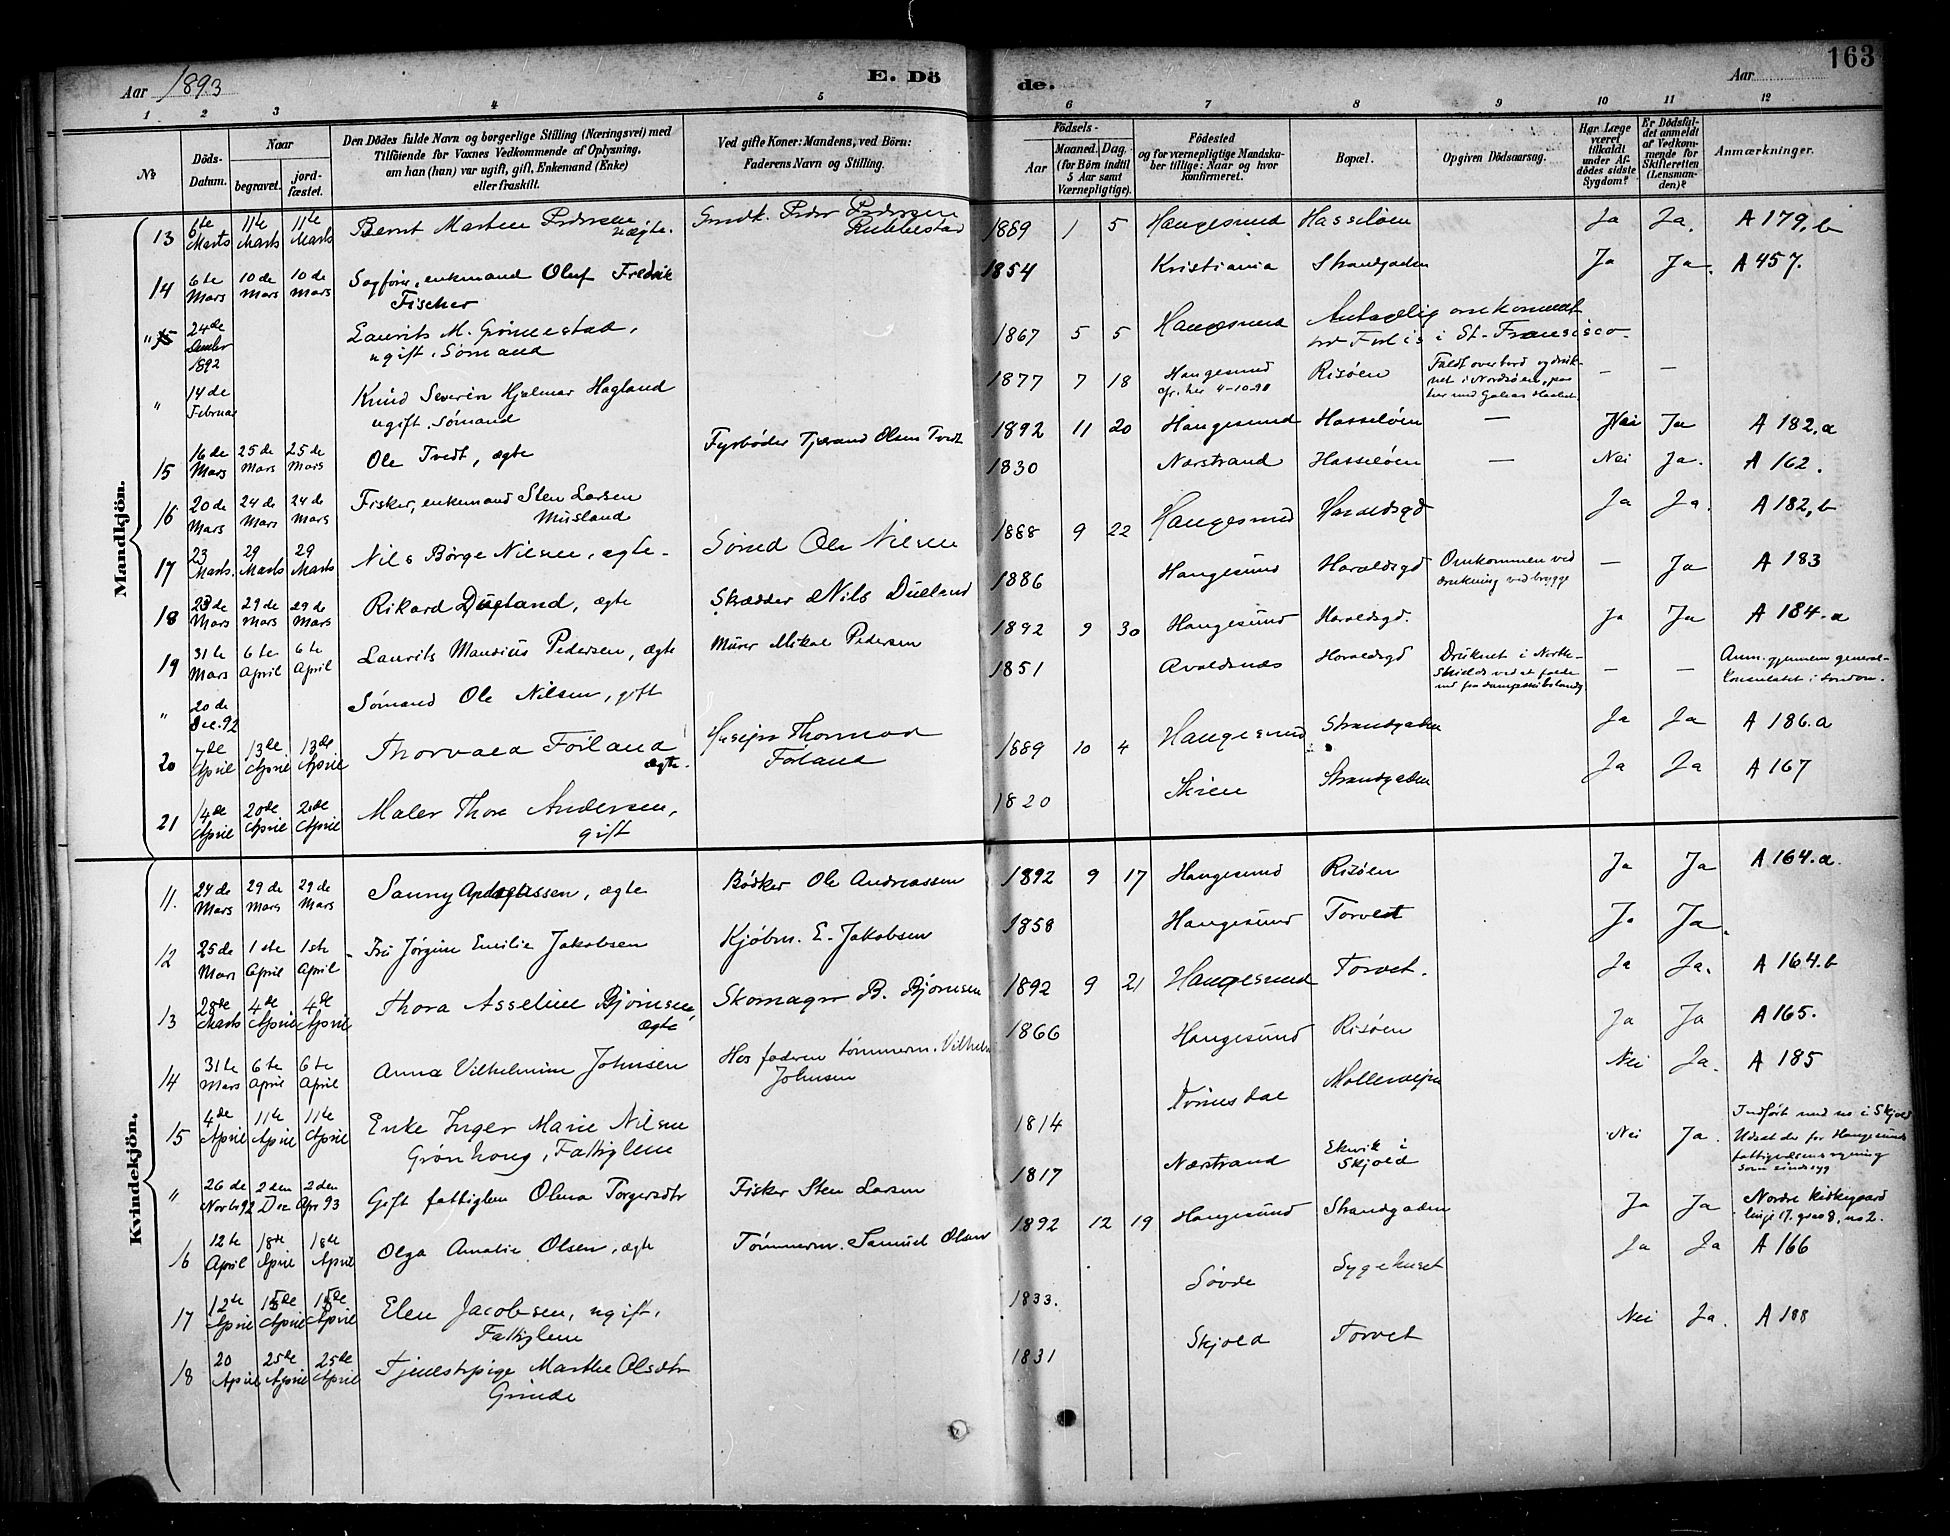 Aar 1893
E. Dö
de.
Aar
163
1 2 3 4 5 6 7 8 9 10 11 12
No
Döds-Datum.
Naar
begravet.
jord-fæstet.
Den Dödes fulde Navn og borgerlige Stilling (Næringsvei) med
Tilföiende for Voxnes Vedkommende af Oplysning,
om han (hun) var ugift, gift, Enkemand (Enke)
eller fraskilt.
Ved gifte Koner: Mandens, ved Börn:
Faderens Navn og Stilling.
Födsels-
Aar
Maaned. Dag.
(for Börn indtil
5 Aar samt
Værnepligtige).
Födested
og for værnepligtige Mandska-
ber tillige: Naar og hvor
konfirmeret.
Bopæl.
Opgiven Dödsaarsag.
Har Læge
været
tilkaldt
under Af-
dödes sidste
Sygdom?
Er Dödsfal-
det anmeldt
af Vedkom-
mende for
Skifteretten
(Lensman-
den)?
Anmærkninger.
Mandkjön.
13 6te Marts 11te Marts 11te Marts Bernt Martin Pedersen, uægte. Peder Pedersen Rubbestad 1889 1 5 Haugesund Hasselöen Ja Ja. A 179, b
14 6te Mars 10de Mars 10de Mars Sagfører, enkemand Oluf Fredrik Fischer 1854 Kristiania Strandgaden Ja Ja. A 457.
" 24de 1892 Laurits M. Grönnestad, ugift, Sömand 1867 5 5 Haugesund Antagelig omkommet ved Forlis i St. Fransisco
" 14de Februar Knud Severin Hjalmar Hagland ugift, Sömand 1877 7 18 Haugesund Risöen Faldt overbord og druk-
net i Nordsöen — —
15 16de Mars 25de Mars 25de Mars Ole Tvedt, ægte Fyrböder Tjerand Olsen Tvedt 1892 11 20 Haugesund Hasselöen — Nei Ja A 182, a
16 20de Mars 24de Mars 24de Mars Fisker, enkemand Sten Larsen Musland 1830 Nærstrand Hasselöen — Nei Ja. A 162.
17 23 Marts. 29 Marts 29 Marts Nils Börge Nilsen, ægte. Sömd Ole Nilsen 1888 9 22 Haugesund Haraldsgd Ja Ja. A 182, b
18 23de Mars 29de Mars 29de Mars Rikard Dueland, ægte Skrædder Nils Dueland 1886 Haugesund Haraldsgd Omkommen ved
drukning ved brygge — Ja A 183
19 31te Mars 6te April 6te April Laurits Mandius Pedersen, ægte Murer Mikal Pedersen 1892 9 30 Haugesund Haraldsgd. Ja Ja A 184. a
" 20de Dec. 92 Sömand Ole Nilsen, gift 1851 Avaldsnæs Haraldsgd Druknet i North-
Shields ved at falde
ned fra dampskibslandg — — Anm. gjennem general-
konsulatet i London.
20 7de April 13de April 13de April Thorvald Förland ægte. Thormod Förland 1889 10 4 Haugesund Strandgaden Ja Ja A 186. a
21 14de April 20de April 20de April Maler Thore Andersen, gift 1820 Skien Strandgaden Ja Ja A 167
Kvindekjön.
11. 24de Mars 29de Mars 29de Mars Sanny Andreassen, ægte Bödker Ole Andreassen 1892 9 17 Haugesund Risöen Ja Ja A 164. a.
12 25de Mars 1ste April 1ste April Fru Jörgine Emilie Jakobsen Kjöbm. E. Jakobsen 1858 Haugesund Torvet Ja Ja.
13 28de Marts 4de April 4de April Thora Asseline Björnsen, ægte Skomager B. Björnsen 1892 9 21 Haugesund Torvet. Ja Ja. A 164. b
14 31te Mars 6te April 6te April Anna Vilhelmine Johnsen Hos faderen tömmerm. Vilhelm Johnsen 1866 Haugesund Risöen Ja Ja A 165.
15 4de April 11te April 11te April Enke Inger Marie Nilsen Grönhaug, Fattiglem 1814 Möllerveien Nei Ja. A 185
" 26de Novb 92 2den Dec 2den Apr 93 Gift fattiglem Olina Torgersdtr Fisker Sten Larsen 1817 Nærstrand Ekvik i Skjold Nei Ja. Indfört med no i Skjold
Udsat der for Haugesunds
fattigvæsens regning
som sindssyg
16 12te April 18de April 18de April Olga Amalie Olsen, ægte Tömmerm. Samuel Olsen 1892 12 19 Haugesund Strandgaden Ja Ja Nordre kirkegaard
linje 17. grav 8, no 2.
17 12te April 15de April 15de April Elen Jacobsen, ugift, Fattiglem 1833. Sövde Sygehuset Ja Ja A 166
18 20 April 25de April 25de April Tjenestepige Marthe Olsdtr Grinde 1831 Skjold Torvet Nei Ja. A 188